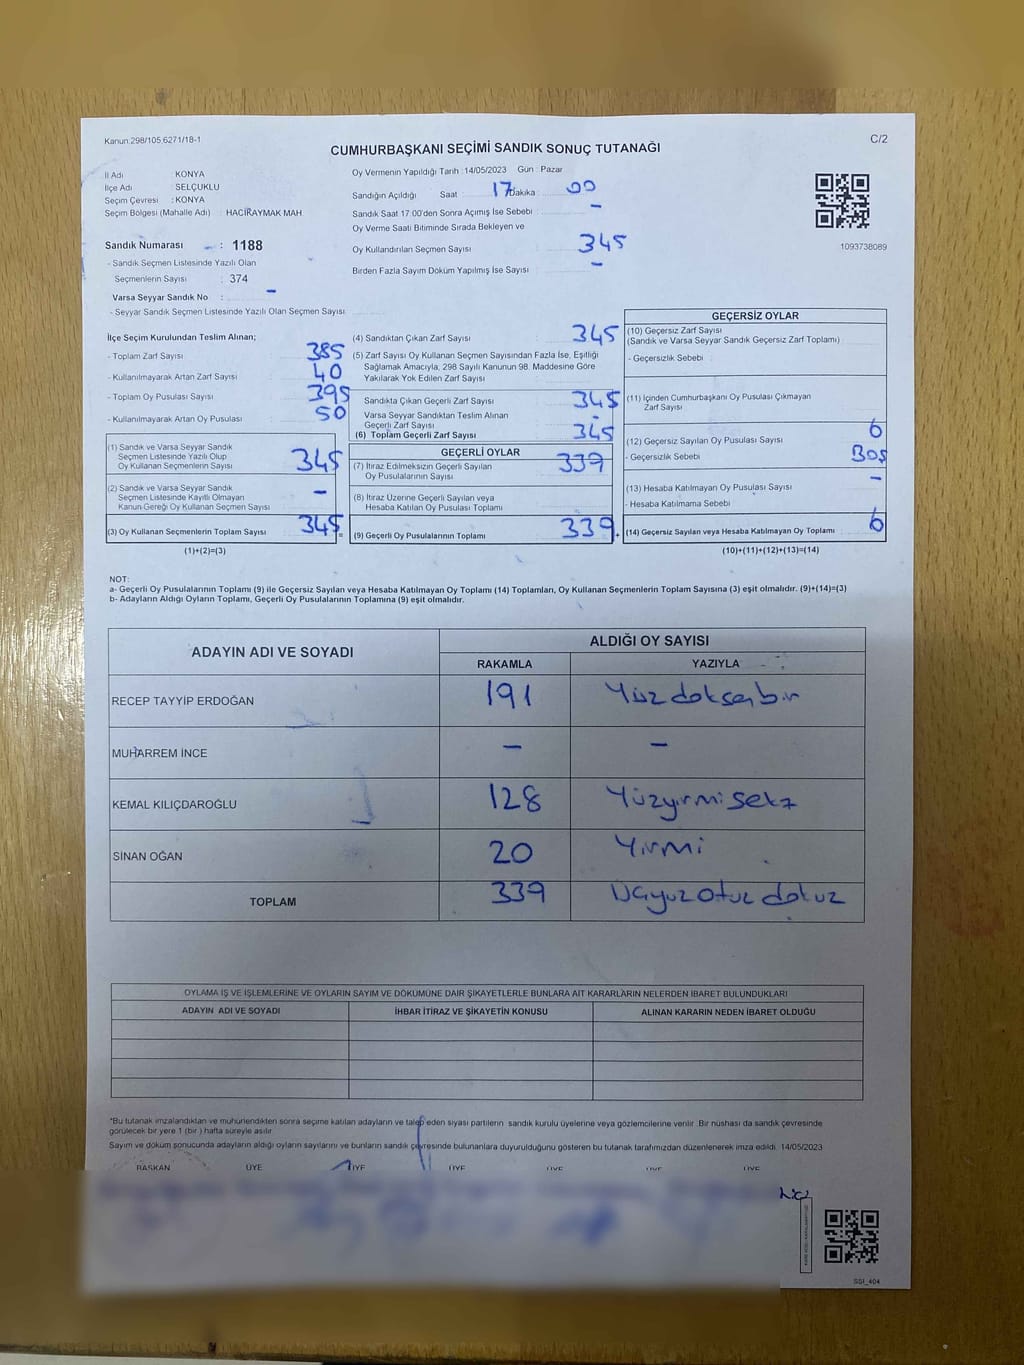 Kanun.298/105.6271/18-1
C/2
CUMHURBAŞKANI SEÇİMİ SANDIK SONUÇ TUTANAĞI
İl Adı KONYA
İlçe Adı SELÇUKLU
Seçim Çevresi : KONYA
Seçim Bölgesi (Mahalle Adı) : HACIRAYMAK MAH.
Sandık Numarası - : 1188
- Sandık Seçmen Listesinde Yazılı Olan
Seçmenlerin Sayısı : 374
Varsa Seyyar Sandık No : -
- Seyyar Sandık Seçmen Listesinde Yazılı Olan Seçmen Sayısı
Oy Vermenin Yapıldığı Tarih :14/05/2023 Gün : Pazar
Sandığın Açıldığı Saat 17 Dakika : 00
Sandık Saat 17.00'den Sonra Açımış İse Sebebi : -
Oy Verme Saati Bitiminde Sırada Bekleyen ve
Oy Kullandırılan Seçmen Sayısı : 345
Birden Fazla Sayım Döküm Yapılmış İse Sayısı : -
1093738089
İlçe Seçim Kurulundan Teslim Alınan;
- Toplam Zarf Sayısı : 385
- Kullanılmayarak Artan Zarf Sayısı : 40
- Toplam Oy Pusulası Sayısı : 395
- Kullanılmayarak Artan Oy Pusulası : 50
(1) Sandık ve Varsa Seyyar Sandık
Seçmen Listesinde Yazılı Olup
Oy Kullanan Seçmenlerin Sayısı 345
(2) Sandık ve Varsa Seyyar Sandık
Seçmen Listesinde Kayıtlı Olmayan
Kanun Gereği Oy Kullanan Seçmen Sayısı -
(3) Oy Kullanan Seçmenlerin Toplam Sayısı 345 =
(1)+(2)=(3)
(4) Sandıktan Çıkan Zarf Sayısı : 345
(5) Zarf Sayısı Oy Kullanan Seçmen Sayısından Fazla İse, Eşitliği
Sağlamak Amacıyla, 298 Sayılı Kanunun 98. Maddesine Göre
Yakılarak Yok Edilen Zarf Sayısı
Sandıkta Çıkan Geçerli Zarf Sayısı 345
Varsa Seyyar Sandıktan Teslim Alınan
Geçerli Zarf Sayısı -
(6) Toplam Geçerli Zarf Sayısı 345
GEÇERLİ OYLAR
(7) İtiraz Edilmeksizin Geçerli Sayılan
Oy Pusulalarının Sayısı 339
(8) İtiraz Üzerine Geçerli Sayılan veya
Hesaba Katılan Oy Pusulası Toplamı
(9) Geçerli Oy Pusulalarının Toplamı 339 +
GEÇERSİZ OYLAR
(10) Geçersiz Zarf Sayısı
(Sandık ve Varsa Seyyar Sandık Geçersiz Zarf Toplamı)
- Geçersizlik Sebebi :
(11) İçinden Cumhurbaşkanı Oy Pusulası Çıkmayan
Zarf Sayısı
(12) Geçersiz Sayılan Oy Pusulası Sayısı : 6
- Geçersizlik Sebebi : Boş
(13) Hesaba Katılmayan Oy Pusulası Sayısı : -
- Hesaba Katılmama Sebebi :
(14) Geçersiz Sayılan veya Hesaba Katılmayan Oy Toplamı 6
(10)+(11)+(12)+(13)=(14)
NOT:
a- Geçerli Oy Pusulalarının Toplamı (9) ile Geçersiz Sayılan veya Hesaba Katılmayan Oy Toplamı (14) Toplamları, Oy Kullanan Seçmenlerin Toplam Sayısına (3) eşit olmalıdır. (9)+(14)=(3)
b- Adayların Aldığı Oyların Toplamı, Geçerli Oy Pusulalarının Toplamına (9) eşit olmalıdır.
ADAYIN ADI VE SOYADI
ALDIĞI OY SAYISI
RAKAMLA YAZIYLA
RECEP TAYYİP ERDOĞAN 191 Yüz doksan bir
MUHARREM İNCE - -
KEMAL KILIÇDAROĞLU 128 Yüzyirmi sekz
SİNAN OĞAN 20 Yirmi
TOPLAM 339 Üçyuz otuz dokuz
OYLAMA İŞ VE İŞLEMLERİNE VE OYLARIN SAYIM VE DÖKÜMÜNE DAİR ŞİKAYETLERLE BUNLARA AİT KARARLARIN NELERDEN İBARET BULUNDUKLARI
ADAYIN ADI VE SOYADI İHBAR İTİRAZ VE ŞİKAYETİN KONUSU ALINAN KARARIN NEDEN İBARET OLDUĞU
*Bu tutanak imzalandıktan ve mühürlendikten sonra seçime katılan adayların ve talep eden siyasi partilerin sandık kurulu üyelerine veya gözlemcilerine verilir. Bir nüshası da sandık çevresinde
görülecek bir yere 1 (bir ) hafta süreyle asılır.
Sayım ve döküm sonucunda adayların aldığı oyların sayılarını ve bunların sandık çevresinde bulunanlara duyurulduğunu gösteren bu tutanak tarafımızdan düzenlenerek imza edildi. 14/05/2023
BAŞKAN ÜYE ÜYE ÜYE ÜYE ÜYE ÜYE
SSI_404